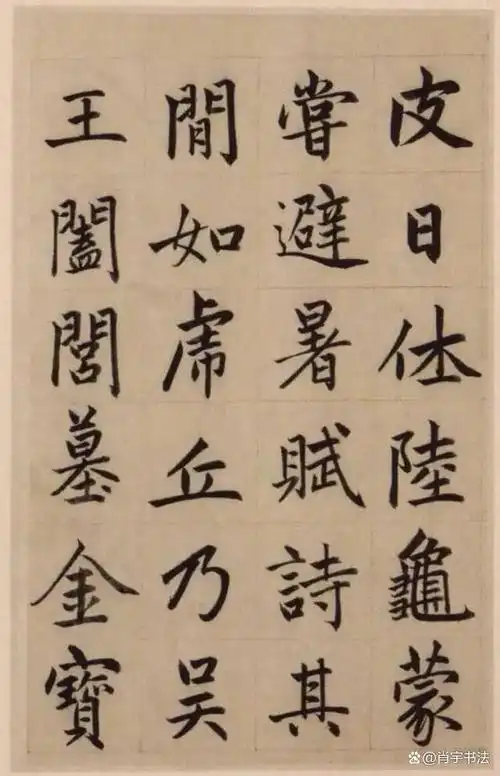 皮日休陸龜蒙
嘗避暑賦詩其
間如虎丘乃吴
王闔閭墓金寶
肖宇书法